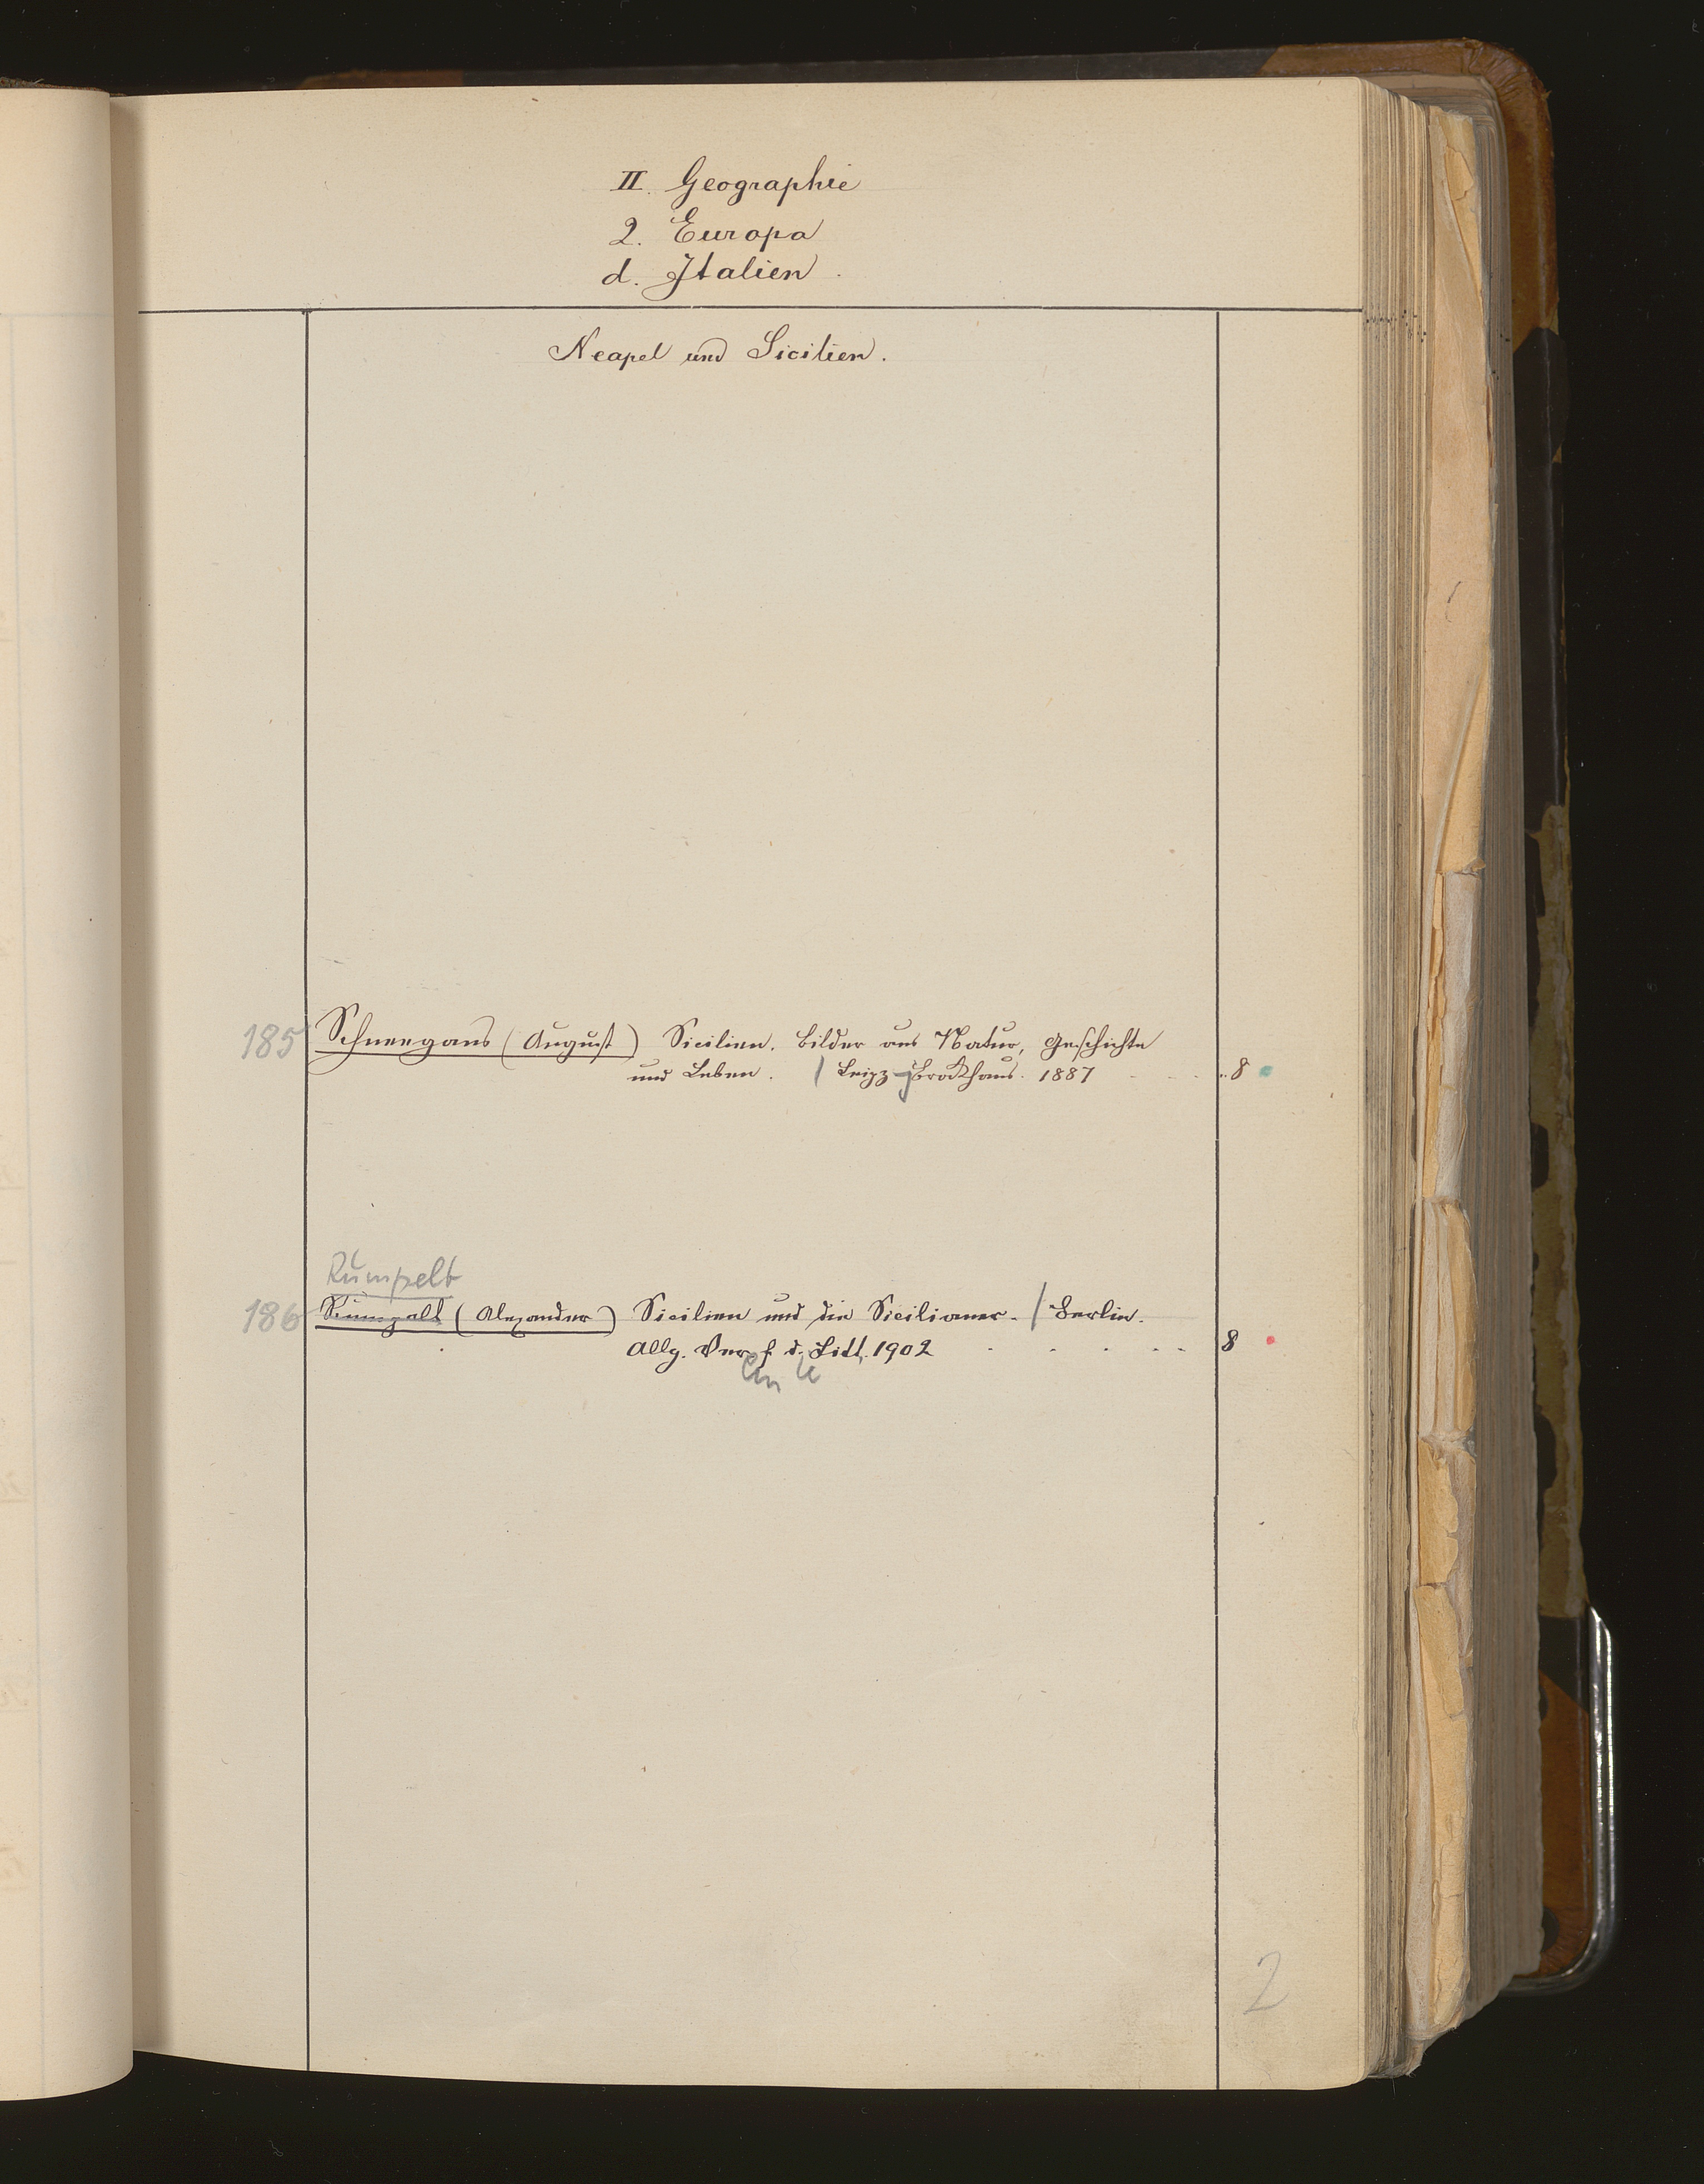 II. Geographie
2. Europa
d. Italien.
Neapel und Sicilien.
185 Schneegans (August) Sicilien. Bilder aus Natur, Geschichte
und Leben. / Leipz Brockhaus. 1887 8
Rumpelt
186 (Alexander) Sicilien und die Sicilianer. / Berlin.
Allg. Ver f. d. Litt. 1902 8
2